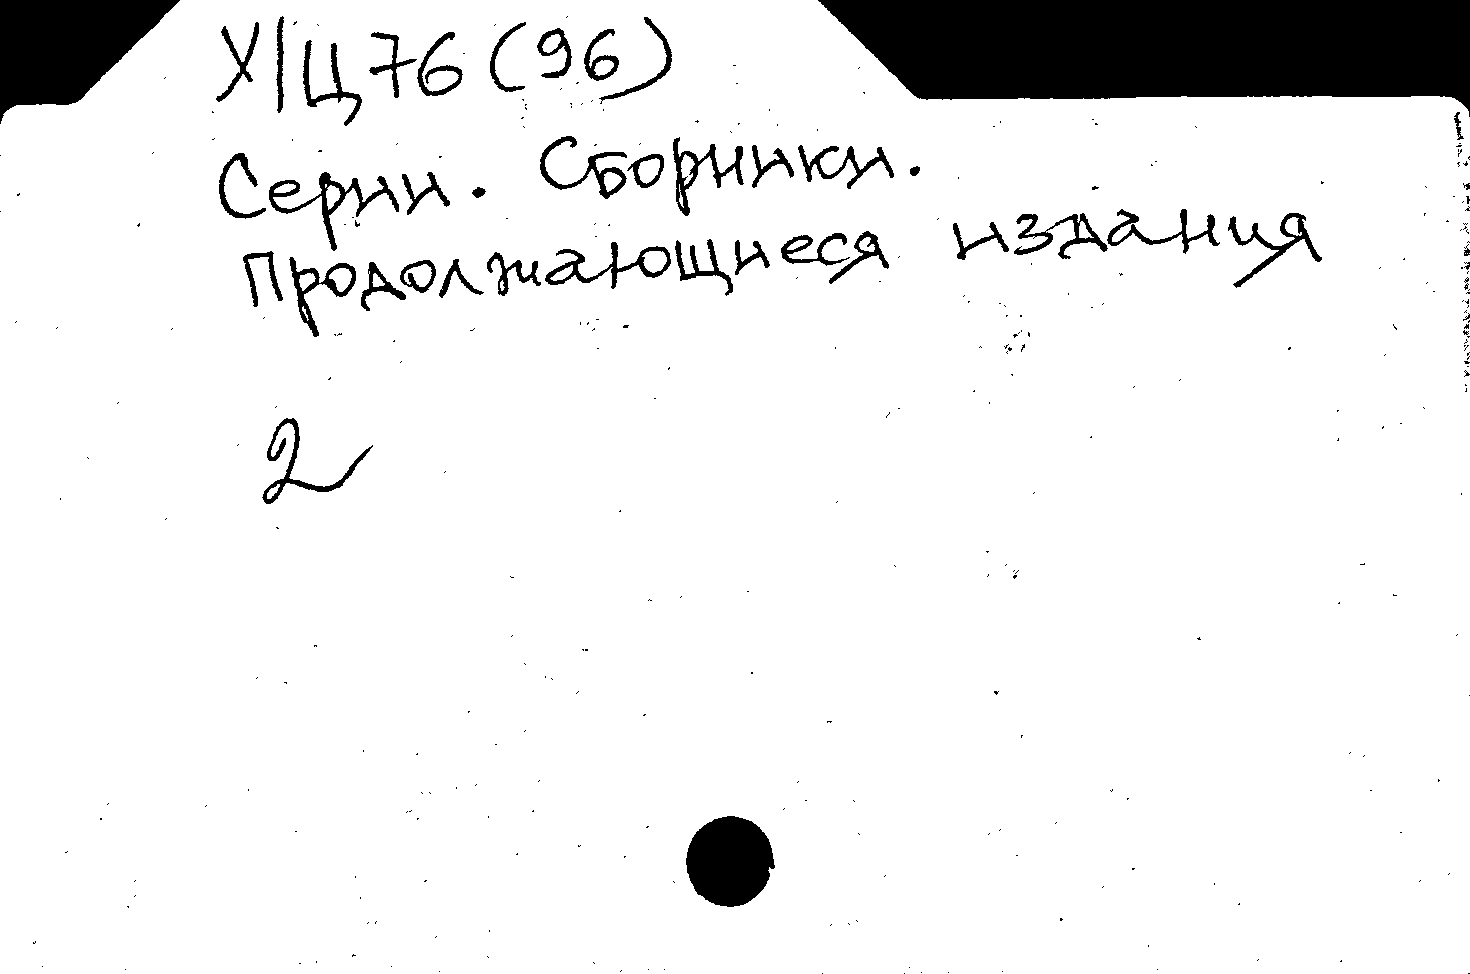 Х/Ц76(96)
Серии. Сборники.
Продолжающиеся издания
2